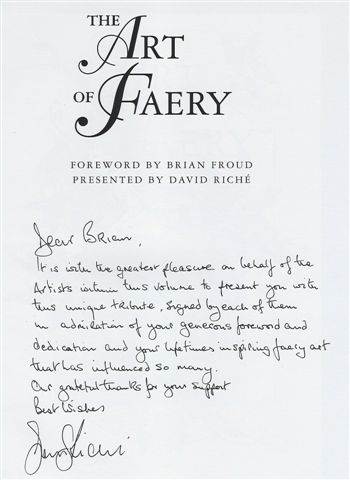 THE
ART
OF FAERY
FOREWORD BY BRIAN FROUD
PRESENTED BY DAVID RICHÉ
Dear Brian,
It is with the greatest pleasure on behalf of the
Artists within this volume to present you with
this unique tribute, signed by each of them
in admiration of your generous foreword and
dedication and your lifetimes inspiring faery art
that has influenced so many.
Our grateful thanks for your support
Best Wishes
David Riché